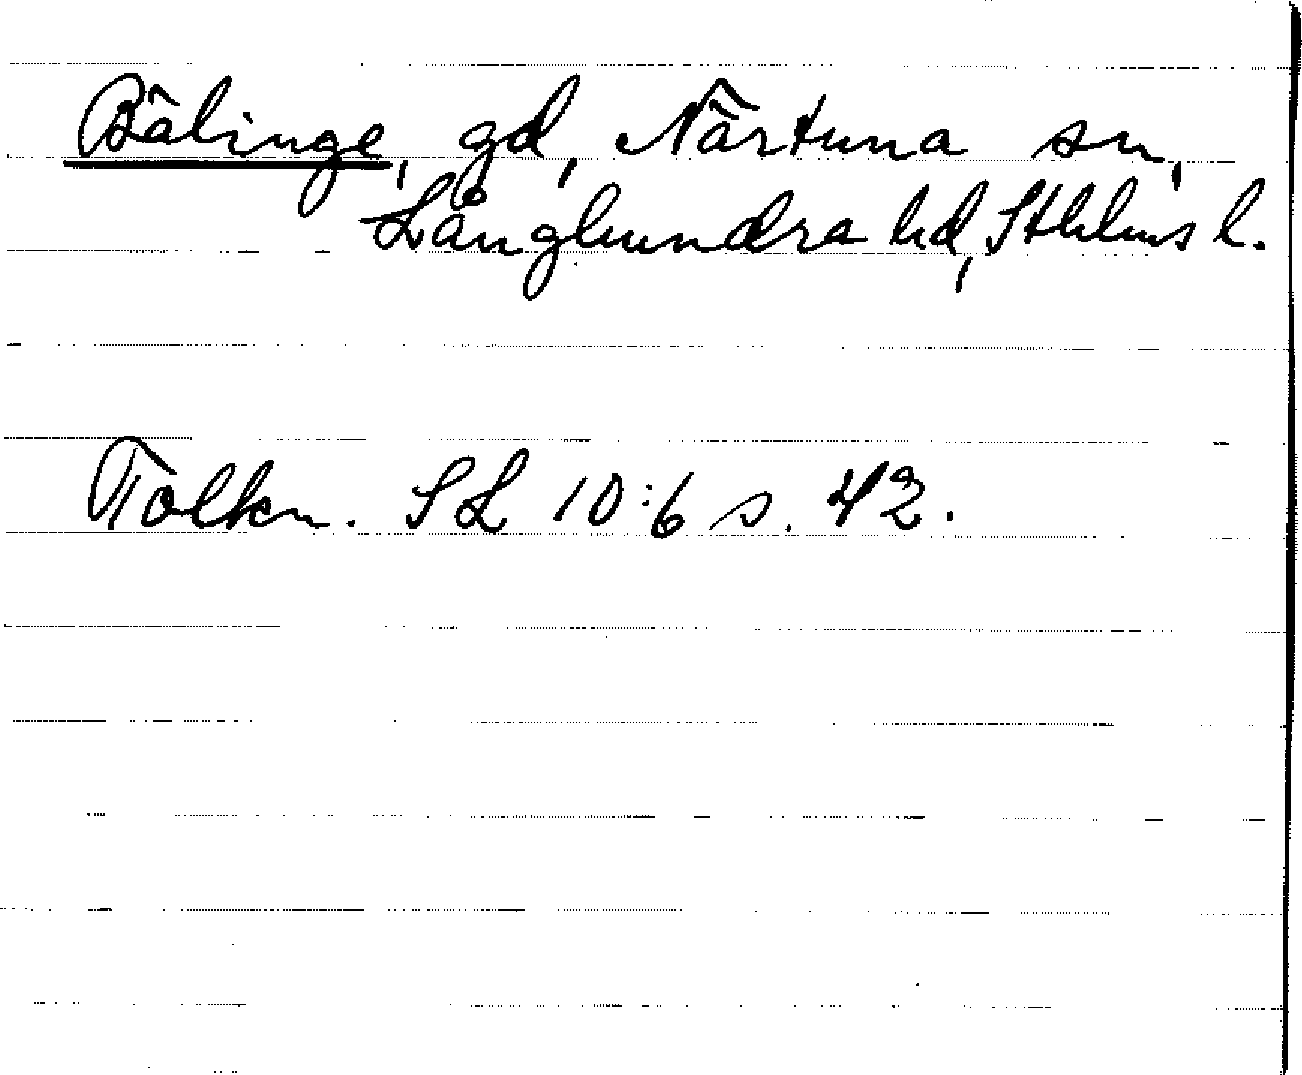 Bälinge, gd, Närtuna sn,
Långhundra hd, Sthlms l.
Tolkn. SL 10:6 s. 42.